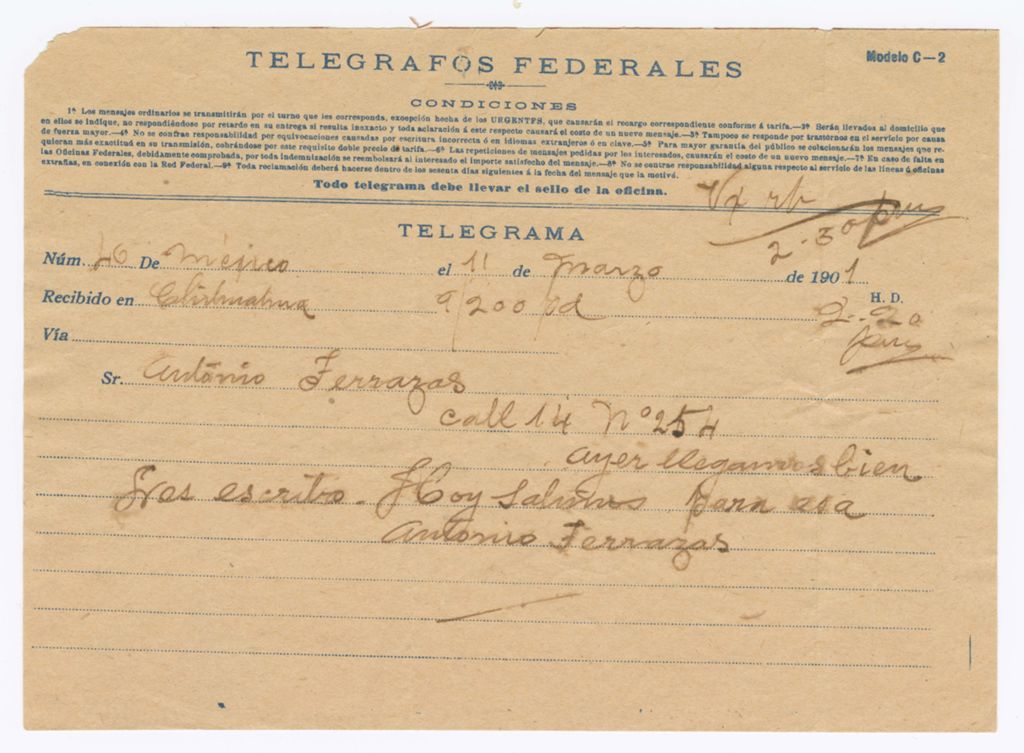 TELEGRAFOS FEDERALES
Modelo C—2
CONDICIONES
1ª Los mensajes ordinarios se transmitirán por el turno que les corresponda, excepción hecha de los URGENTES, que causarán el recargo correspondiente conforme á tarifa.—2ª Serán llevados al domicilio que
en ellos se indique, no respondiéndose por retardo en su entrega si resulta inexacto y toda aclaración á este respecto causará el costo de un nuevo mensaje.—3ª Tampoco se responde por trastornos en el servicio por causa
de fuerza mayor.—4ª No se contrae responsabilidad por equivocaciones causadas por escritura incorrecta ó en idiomas extranjeros ó en clave.—5ª Para mayor garantía del público se colacionarán los mensajes que re-
quieran más exactitud en su transmisión, cobrándose por este requisito doble precio de tarifa.—6ª Las repeticiones de mensajes pedidas por los interesados, causarán el costo de un nuevo mensaje.—7ª En caso de falta en
las Oficinas Federales, debidamente comprobada, por toda indemnización se reembolsará al interesado el importe satisfecho del mensaje.—8ª No se contrae responsabilidad alguna respecto al servicio de las líneas ú oficinas
extrañas, en conexión con la Red Federal.—9ª Toda reclamación deberá hacerse dentro de los sesenta días siguientes á la fecha del mensaje que la motivó.
Todo telegrama debe llevar el sello de la oficina.
2-30
TELEGRAMA
Núm. De Méjico el 11 de Marzo de 1901
Recibido en Chihuahua 9/200 pd H. D.
2-20
Vía
Sr. Antonio Terrazas
call 14 Nº 25
ayer llegamos bien
escribo. Hoy salimos para esa
Antonio Terrazas